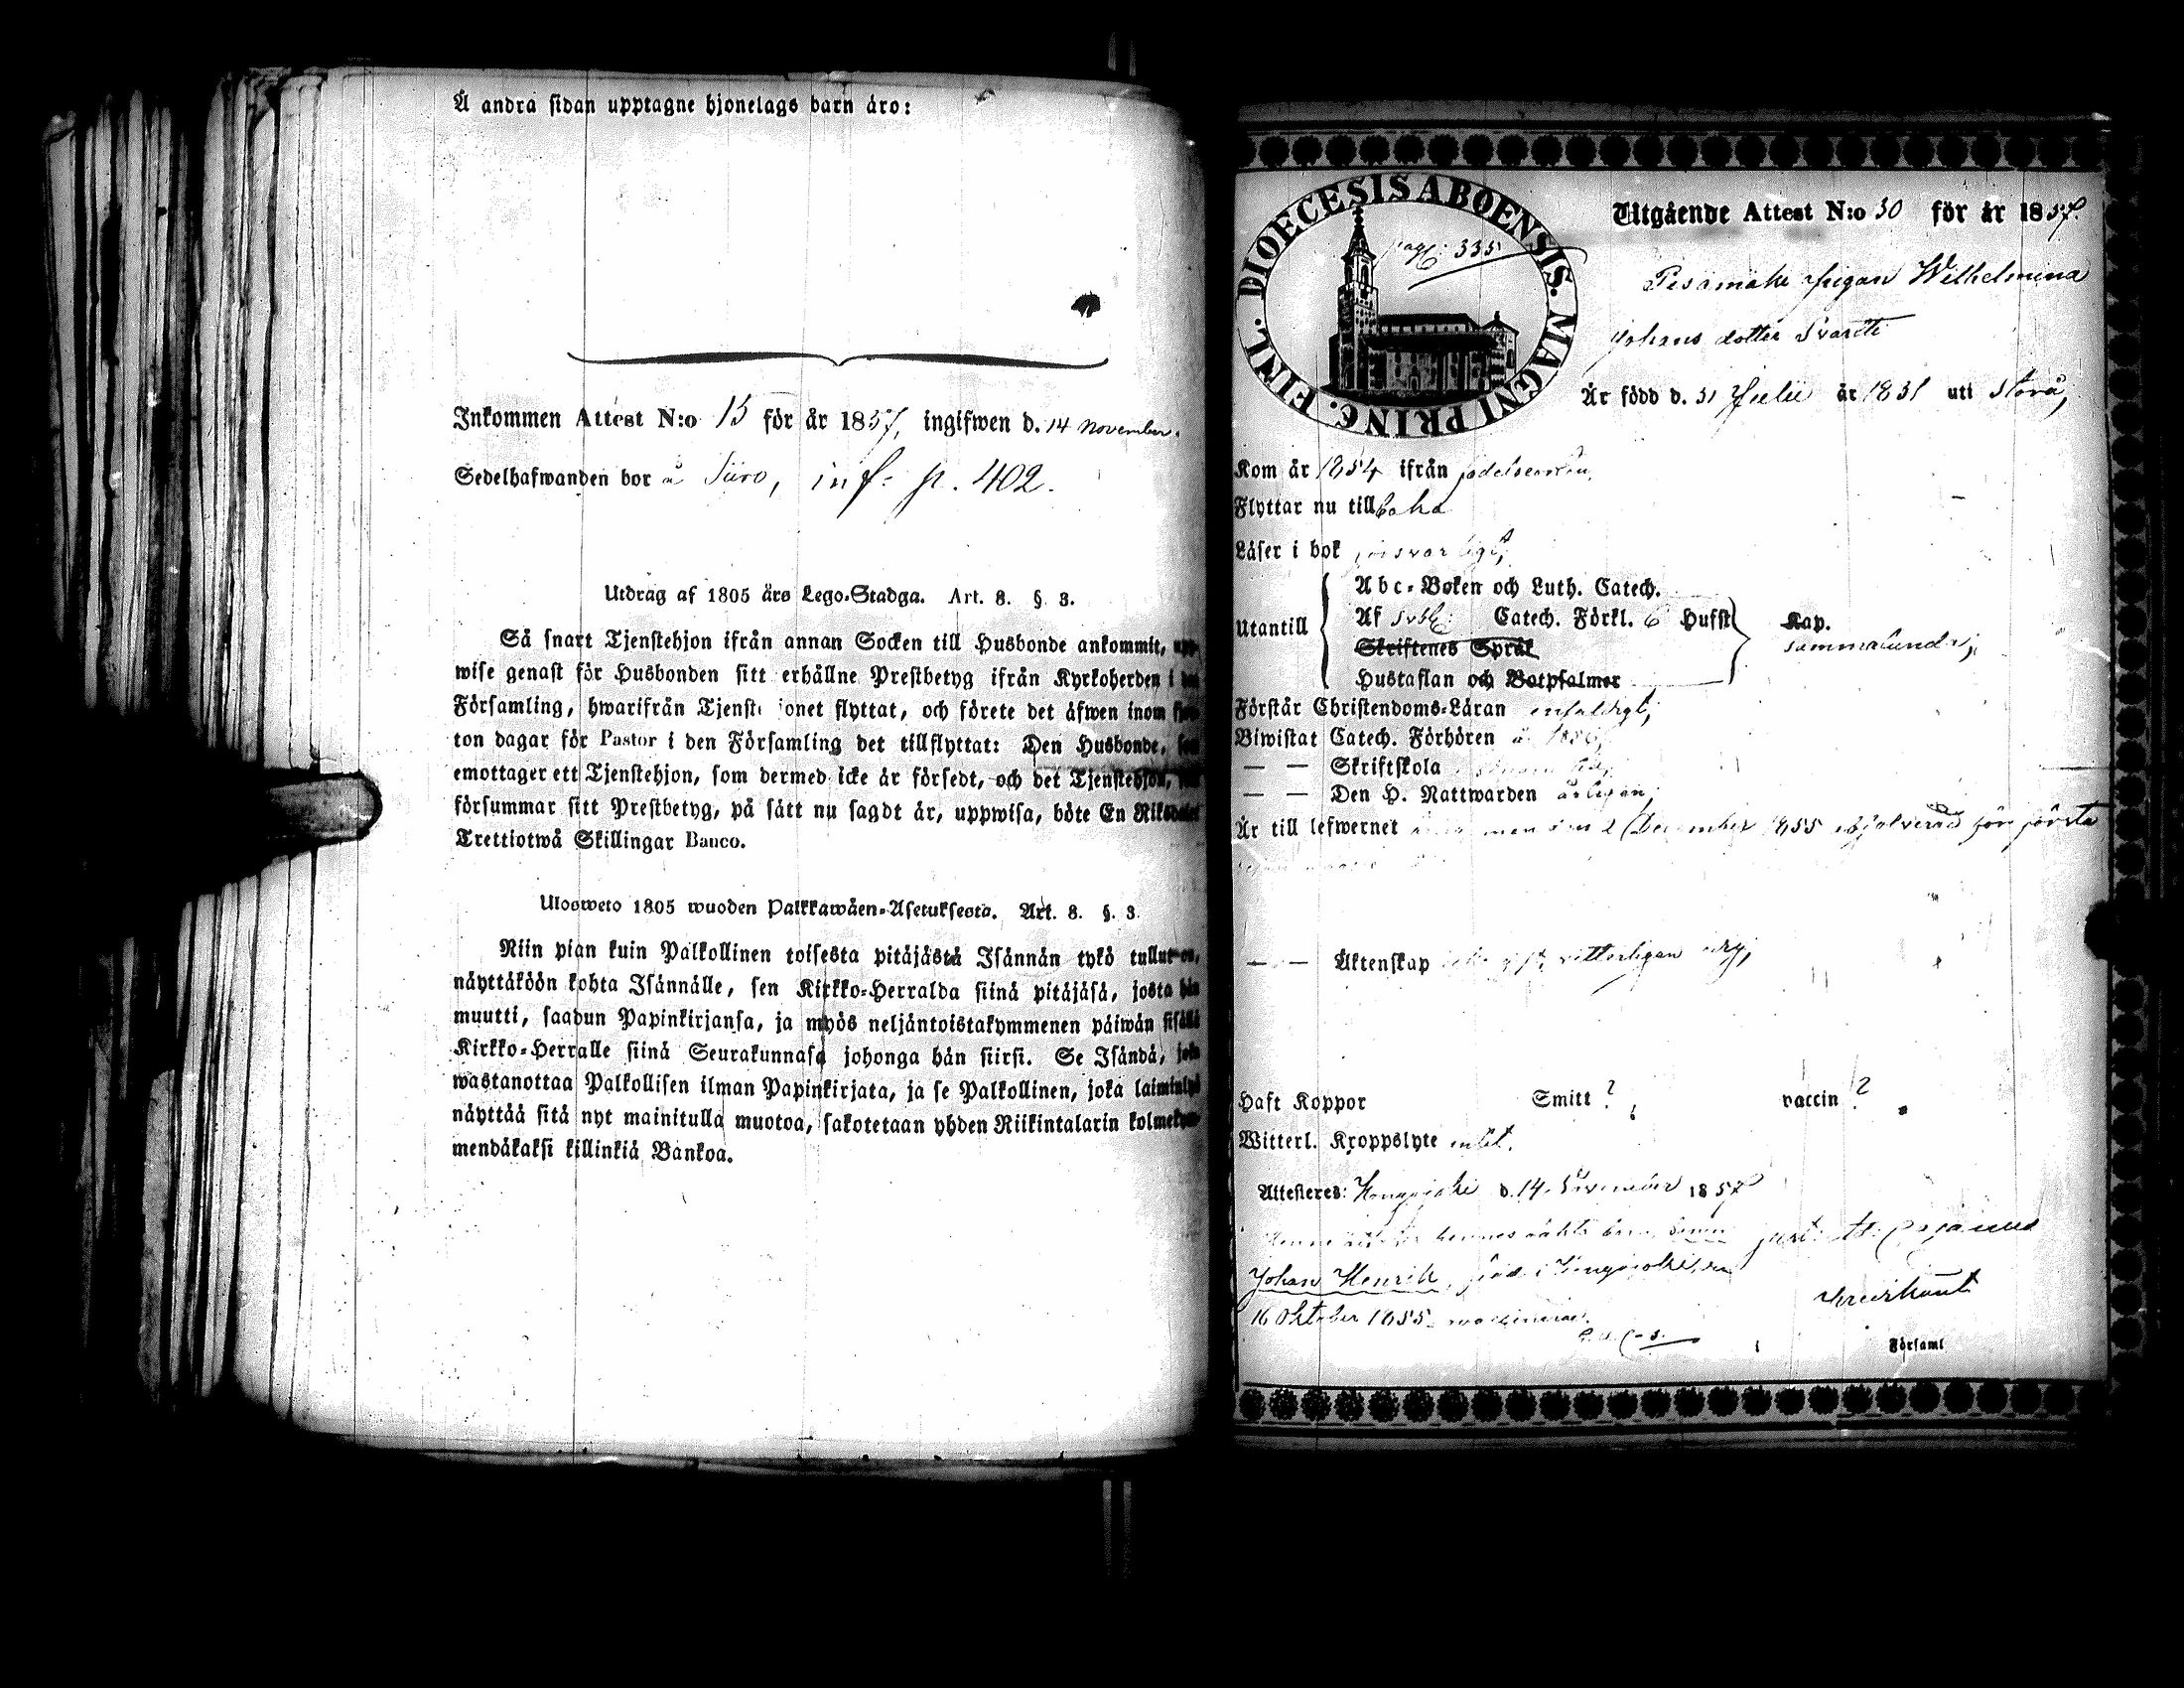 Å andra sidan upptagne hjonelags barn äro:
Inkommen Attest N:o 15 för år 1857, ingifwen d. 14 November.
Sedelhafwanden bor å Siiro, inf: p. 402.
Utdrag af 1805 års Lego-Stadga. Art. 8. §. 3.
Så snart Tjenstehjon ifrån annan Socken till Husbonde ankommit,
wise genast för Husbonden sitt erhållne Prestbetyg ifrån Kyrkoherden i
Församling, hwarifrån Tjenste jonet flyttat, och förete det äfwen inom
ton dagar för Pastor i den Församling det tillflyttat: Den Husbonde,
emottager ett Tjenstehjon, som dermed icke är försedt, och det Tjenstehjon,
försummar sitt Prestbetyg, på sätt nu sagdt är, uppwisa, böte En Riksdaler
Trettiotwå Skillingar Banco.
Ulosweto 1805 wuoden Palkkawäen-Asetuksesta. Art. 8. §. 3.
Niin pian kuin Palkollinen toisesta pitäjästä Isännän tykö tullut on,
näyttäköön kohta Isännälle, sen Kirkko-Herralda siinä pitäjäsä, josta hän
muutti, saadun Papinkirjansa, ja myös neljäntoistakymmenen päiwän sisällä
Kirkko-Herralle siinä Seurakunnasa johonga hän siirsi. Se Isändä, joka
wastanottaa Palkollisen ilman Papinkirjata, ja se Palkollinen, joka laiminlyö
näyttää sitä nyt mainitulla muotoa, sakotetaan yhden Riikintalarin kolmekym-
mendäkaksi killinkiä Bankoa.
DIOECESIS ABOENSIS. MAGNI PRINC. FINL.
pag: 335
Utgående Attest N:o 50 för år 1857.
Pesämäki pigan Wilhelmina
Johans dotter Svarti
Är född d. 31 Julii år 1831 uti Storå,
Kom år 1854 ifrån födelseorten,
Flyttar nu till
Läser i bok försvarligt,
Utantill
Abc-Boken och Luth. Catech.
Af Svb: Catech. Förkl. 6 Hufst Kap.
Skriftenes Språk sammalunda;
Hustaflan och Botpsalmer
Förstår Christendoms-Läran enfaldigt,
Biwistat Catech. Förhören
— — Skriftskola
— — Den H. Nattwarden årligen,
Är till lefwernet men den 2 December 1855 för första
— — Äktenskap vitterligen
Haft Koppor Smitt ? vaccin ?
Witterl. Kroppslyte intet.
Attesteres: d. 14 November 1857
hennes oäkta barn
Johan Henrik, född i
16 Oktober 1855 vaccinerad.
Församl